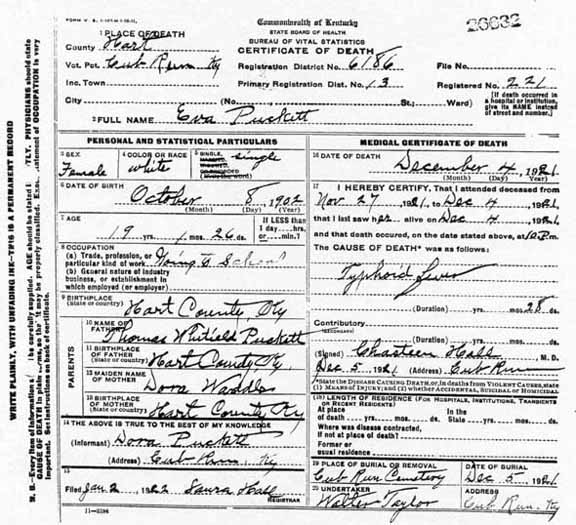 1 PLACE OF DEATH
County Hart
Vot. Pct. Cub Run Ky
Inc. Town
City (No. St.; Ward)
2 FULL NAME Eva Puckett
Commonwealth of Kentucky
STATE BOARD OF HEALTH
BUREAU OF VITAL STATISTICS
CERTIFICATE OF DEATH
Registration District No. 6186
Primary Registration Dist. No. 13
26632
File No.
Registered No. 221
[If death occurred in
a hospital or institution,
give its NAME instead
of street and number.]
PERSONAL AND STATISTICAL PARTICULARS
3 SEX
Female
4 COLOR OR RACE
White
5 SINGLE, single
6 DATE OF BIRTH
October 8 1902
(Month) (Day) (Year)
7 AGE
19 yrs. 1 mos. 26 ds.
If LESS than
1 day....hrs.
or....min.?
8 OCCUPATION
(a) Trade, profession, or
particular kind of work Going to School
(b) General nature of industry
business, or establishment in
which employed (or employer)
9 BIRTHPLACE
(State or country) Hart County, Ky
PARENTS
10 NAME OF
FATHER Thomas Whitfield Puckett
11 BIRTHPLACE
OF FATHER
(State or country) Hart County Ky,
12 MAIDEN NAME
OF MOTHER Dora Waddle
13 BIRTHPLACE
OF MOTHER
(State or country) Hart County Ky
14 THE ABOVE IS TRUE TO THE BEST OF MY KNOWLEDGE
(Informant) Dora Puckett
(Address) Cub Run, Ky
15
Filed Jan 2 1922 Laura Hall
REGISTRAR
11-3184
MEDICAL CERTIFICATE OF DEATH
16 DATE OF DEATH
December 4, 1921
(Month) (Day) (Year)
17 I HEREBY CERTIFY, That I attended deceased from
Nov 27, 1921, to Dec 4, 1921,
that I last saw her alive on Dec 4, 1921,
and that death occurred, on the date stated above, at 10 P.m.
The CAUSE OF DEATH* was as follows:
Typhoid Fever
(Duration) yrs. mos. 28 ds.
Contributory
(Secondary)
(Duration) yrs. mos. ds.
(Signed) Chasteen Hall, M. D.
Dec. 5, 1921 (Address) Cub Run
*State the DISEASE CAUSING DEATH, or, in deaths from VIOLENT CAUSES, state
(1) MEANS OF INJURY; and (2) whether ACCIDENTAL, SUICIDAL or HOMICIDAL
18 LENGTH OF RESIDENCE (FOR HOSPITALS, INSTITUTIONS, TRANSIENTS
OR RECENT RESIDENTS)
At place In the
of death yrs. mos. ds. State yrs. mos. ds.
Where was disease contracted,
if not at place of death?
Former or
usual residence
19 PLACE OF BURIAL OR REMOVAL
Cub Run Cemetery
DATE OF BURIAL
Dec 5, 1921
20 UNDERTAKER
Walter Taylor
ADDRESS
Cub Run, Ky
WRITE PLAINLY, WITH UNFADING INK—THIS IS A PERMANENT RECORD
N. B.—Every item of information should be carefully supplied. AGE should be stated EXACTLY. PHYSICIANS should state
CAUSE OF DEATH in plain terms, so that it may be properly classified. Exact statement of OCCUPATION is very
important. See instructions on back of certificate.